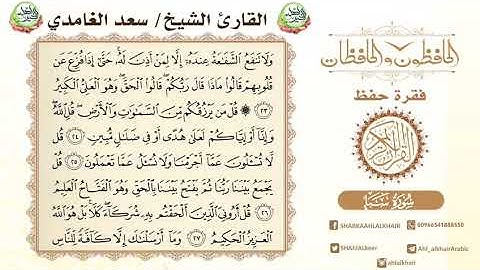 القارئ الشيخ/ سعد الغامدي
وَلَا تَنفَعُ الشَّفَاعَةُ عِندَهُ إِلَّا لِمَنْ أَذِنَ لَهُ حَتَّىٰ إِذَا فُزِّعَ عَن
قُلُوبِهِمْ قَالُوا مَاذَا قَالَ رَبُّكُمْ قَالُوا الْحَقَّ وَهُوَ الْعَلِيُّ الْكَبِيرُ
٢٣ قُلْ مَن يَرْزُقُكُم مِّنَ السَّمَاوَاتِ وَالْأَرْضِ قُلِ اللَّهُ
وَإِنَّا أَوْ إِيَّاكُمْ لَعَلَىٰ هُدًى أَوْ فِي ضَلَالٍ مُّبِينٍ ٢٤ قُل
لَّا تُسْأَلُونَ عَمَّا أَجْرَمْنَا وَلَا نُسْأَلُ عَمَّا تَعْمَلُونَ ٢٥ قُلْ
يَجْمَعُ بَيْنَنَا رَبُّنَا ثُمَّ يَفْتَحُ بَيْنَنَا بِالْحَقِّ وَهُوَ الْفَتَّاحُ الْعَلِيمُ
٢٦ قُلْ أَرُونِيَ الَّذِينَ أَلْحَقْتُم بِهِ شُرَكَاءَ كَلَّا بَلْ هُوَ اللَّهُ
الْعَزِيزُ الْحَكِيمُ ٢٧ وَمَا أَرْسَلْنَاكَ إِلَّا كَافَّةً لِّلنَّاسِ
الحافظون والحافظات
فقرة حفظ
القرآن الكريم
سورة سبأ
SHABKAAHLALKHAIR 00966541888550
Ahl_alkhairArabic
ahlalkhair